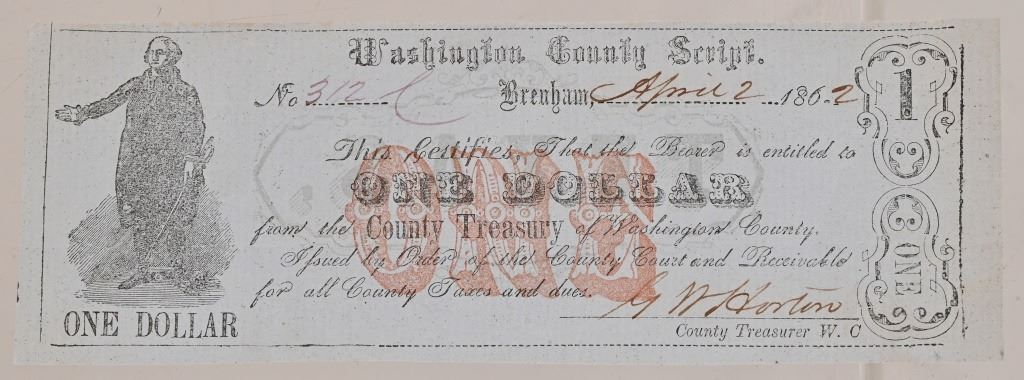 Washington County Script.
No 312 C Brenham, April 2 1862
This Certifies, That the Bearer is entitled to
ONE DOLLAR
ONE
from the County Treasury of Washington County.
Issued by Order of the County Court and Receivable
for all County Taxes and dues.
G W Horton
County Treasurer W. C
ONE DOLLAR
1
ONE